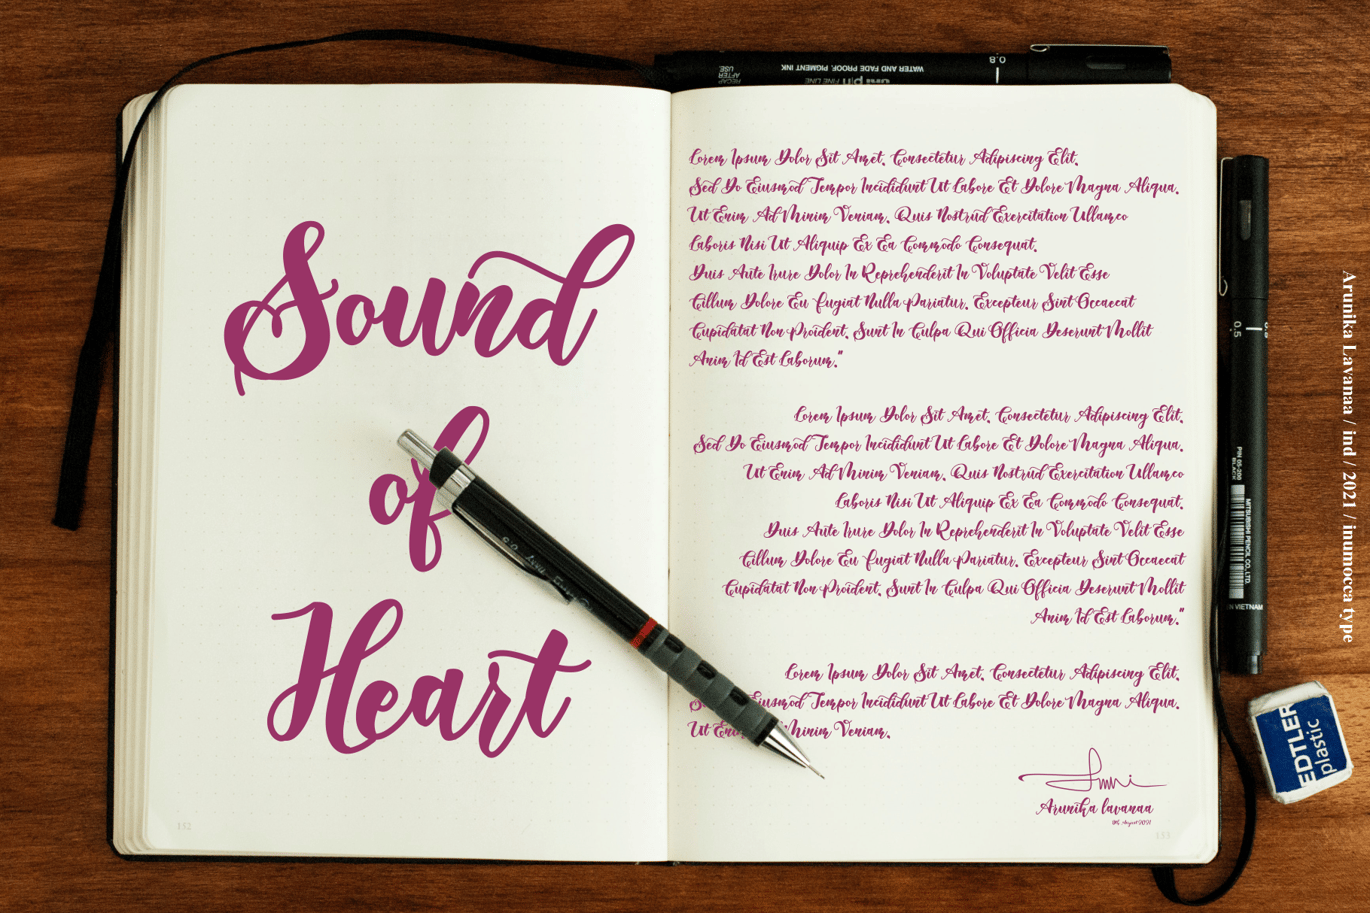 Sound
of
Heart
152
Lorem Ipsum Dolor Sit Amet, Consectetur Adipiscing Elit,
Sed Do Eiusmod Tempor Incididunt Ut Labore Et Dolore Magna Aliqua.
Ut Enim Ad Minim Veniam, Quis Nostrud Exercitation Ullamco
Laboris Nisi Ut Aliquip Ex Ea Commodo Consequat.
Duis Aute Irure Dolor In Reprehenderit In Voluptate Velit Esse
Cillum Dolore Eu Fugiat Nulla Pariatur. Excepteur Sint Occaecat
Cupidatat Non Proident, Sunt In Culpa Qui Officia Deserunt Mollit
Anim Id Est Laborum."
Lorem Ipsum Dolor Sit Amet, Consectetur Adipiscing Elit,
Sed Do Eiusmod Tempor Incididunt Ut Labore Et Dolore Magna Aliqua.
Ut Enim Ad Minim Veniam, Quis Nostrud Exercitation Ullamco
Laboris Nisi Ut Aliquip Ex Ea Commodo Consequat.
Duis Aute Irure Dolor In Reprehenderit In Voluptate Velit Esse
Cillum Dolore Eu Fugiat Nulla Pariatur. Excepteur Sint Occaecat
Cupidatat Non Proident, Sunt In Culpa Qui Officia Deserunt Mollit
Anim Id Est Laborum."
Lorem Ipsum Dolor Sit Amet, Consectetur Adipiscing Elit,
Eiusmod Tempor Incididunt Ut Labore Et Dolore Magna Aliqua.
Ut Minim Veniam,
Arunika lavanaa
August 2021
153
WATER AND FADE PROOF, PIGMENT INK
RECAP
AFTER
USE.
uni pin FINE LINE
0.8
0.5
PIN 05-200
BLACK
MITSUBISHI PENCIL CO., LTD.
IN VIETNAM
EDTLER
plastic
Arunika Lavanaa / ind / 2021 / inumocca type